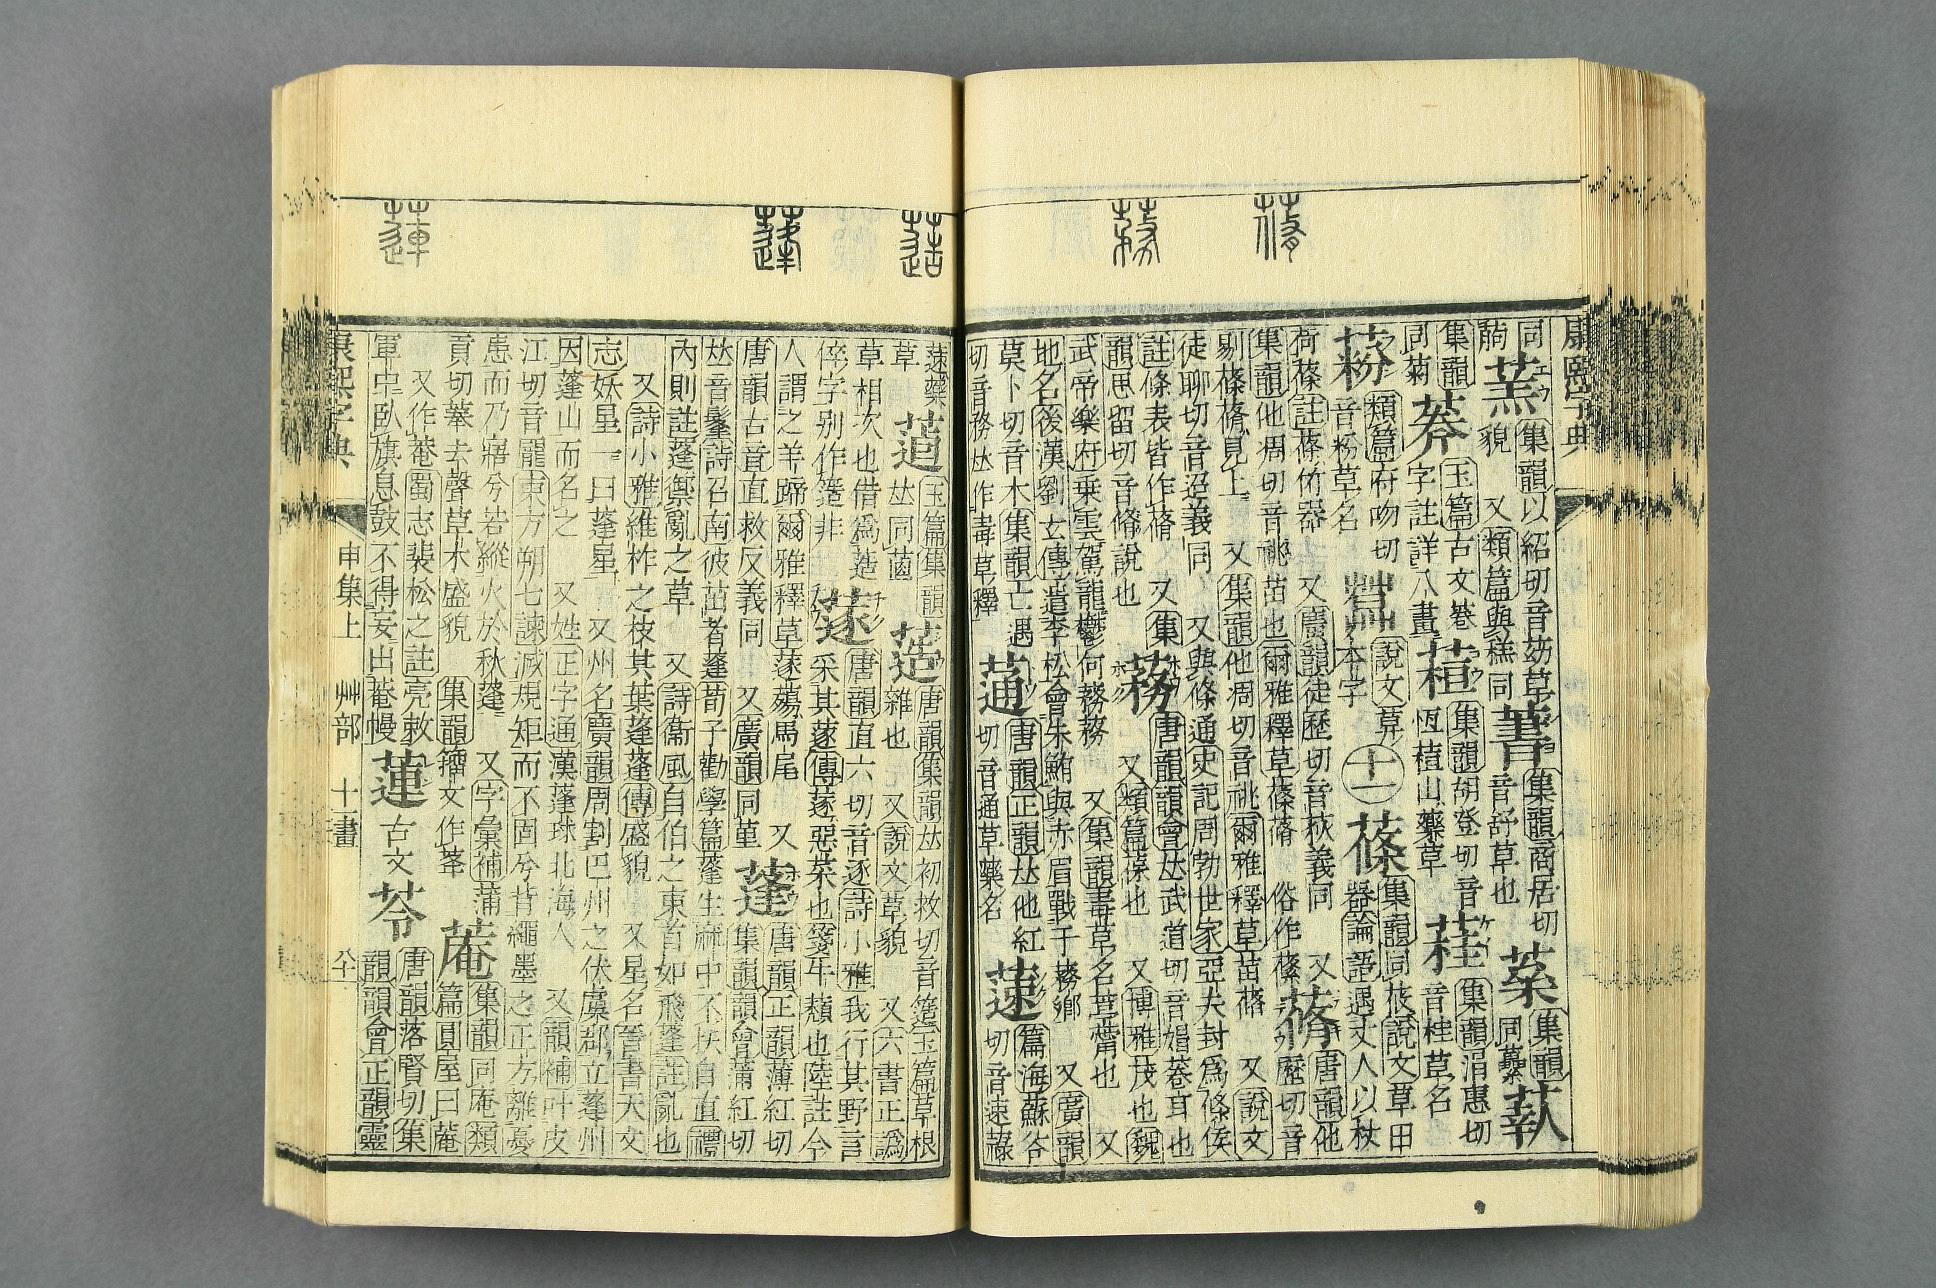 蓨
蓩
康熙字典
同
𦵁
貌
集韻以紹切音䓂草
又類篇與糕同
集韻商居切
音舒草也
集韻
同藄
蓺
集韻
同菊
玉篇古文菤
字註詳八畫
集韻胡登切音
恆植山藥草
集韻涓惠切
音桂草名
類篇府吻切
音粉草名
茻
說文草
本字
十一
蓧
集韻同莜說文草田
器論語遇丈人以杖
荷蓧註蓧竹器 又廣韻徒歷切音荻義同 又
集韻他凋切音祧苗也爾雅釋草蓧蓨 俗作樤
蓨
唐韻他
歷切音
剔蓧蓨見上 又集韻他凋切音祧爾雅釋草苗蓨 又說文
徒聊切音迢義同 又與條通史記周勃世家亞夫封爲條侯
註條表皆作蓨 又集
韻思留切音脩說也
蓩
唐韻韻會𠀤武道切音媢菤耳也
又類篇葆也 又博雅茂也魏
武帝樂府乘雲駕龍鬱何蓩蓩 又集韻毒草名 又
地名後漢劉玄傳遣李松會朱鮪與赤眉戰于蓩鄉 又廣韻
莫卜切音木集韻亡遇
切音務𠀤作毒草釋
蓪
唐韻正韻𠀤他紅
切音通草藥名
藗
篇海蘇谷
切音速
蓬
蓮
藥
草
玉篇集韻
𠀤同蓾
唐韻集韻𠀤初救切音簉玉篇草根
雜也 又說文草貌 又六書正譌
草相次也借爲造
倅字别作簉非
蓫
唐韻直六切音逐詩小雅我行其野言
采其蓫傳蓫惡菜也箋牛蘈也陸註今
人謂之羊蹄爾雅釋草蓫薚馬尾 又
唐韻古音直救反義同 又廣韻同堇
蓬
唐韻正韻薄紅切
集韻韻會蒲紅切
𠀤音髼詩召南彼茁者蓬荀子勸學篇蓬生麻中不扶自直禮
內則註蓬禦亂之草 又詩衞風自伯之東首如飛蓬註亂也
又詩小雅維柞之枝其葉蓬蓬傳盛貌 又星名晉書天文
志妖星一曰蓬星 又州名廣韻周割巴州之伏虞郡立蓬州
因蓬山而名之 又姓正字通漢蓬球北海人 又韻補叶皮
江切音龎東方朔七諫滅規矩而不固兮背繩墨之正方離憂
患而乃寤兮若縱火於秋蓬 又字彙補蒲
貢切蓬去聲草木盛貌 集韻籀文作莑
菴
集韻同庵類
篇圓屋曰菴
又作菴蜀志裴松之註亮敕
軍中臥旗息鼓不得妄出菴幔
蓮
古文
苓
唐韻落賢切集
韻韻會正韻靈
康熙字典
申集上
艸部 十一畫